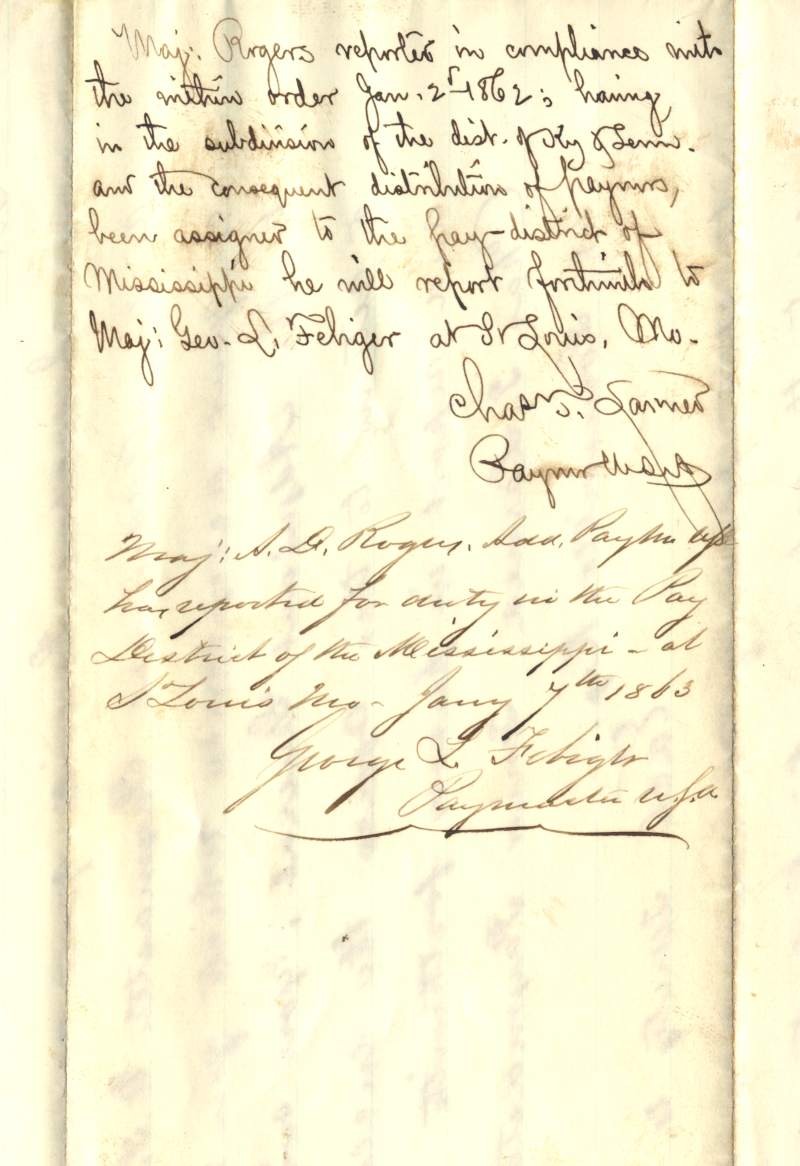 Maj: Rogers reported in compliance with
the within order Jan. 2d 1862; having,
in the subdivision of the dist. of Ky & Tenn.
and the consequent distribution of paymrs,
been assigned to the pay-district of
Mississippi he will report forthwith to
Maj: Geo. L. Febiger at St Louis, Mo.
Chas T. Larned
Paymr USA
Maj: A. D. Rogers, Add. Paymr USA
has reported for duty in the Pay
District of the Mississippi - at
St Louis Mo - Jany 7th 1863
George L Febiger
Paymaster U.S.A